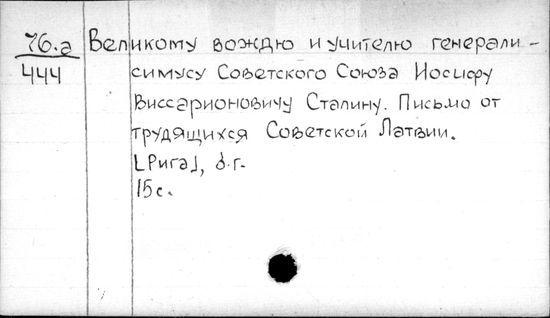 76.а Великому вождю и учителю генерали-
444 симусу Советского Союза Иосифу
Виссарионовичу Сталину. Письмо от
трудящихся Советской Латвии.
[Рига], б.г.
15 с.